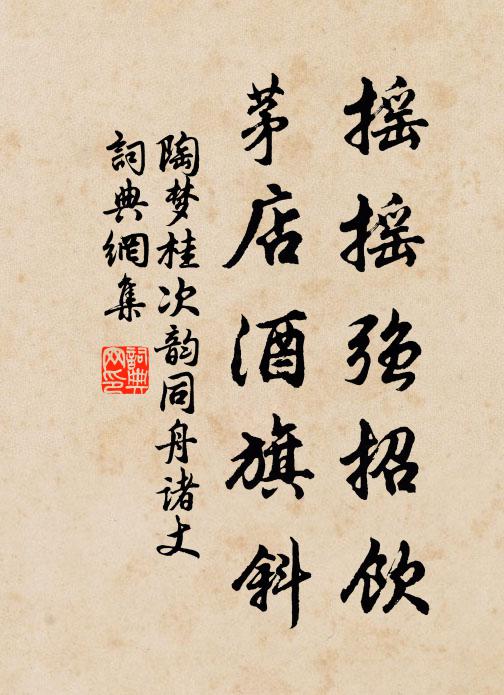 摇摇强招饮
茅店酒旗斜
陶梦桂次韵同舟诸丈
詞典網集
詞典
网印